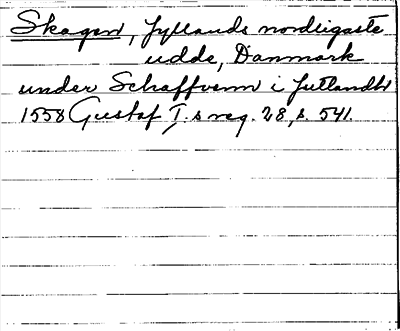 Skagen, Jyllands nordligaste
udde, Danmark
under Schaffvenn i Jutlandh
1558 Gustaf I:s reg. 28, s. 541.